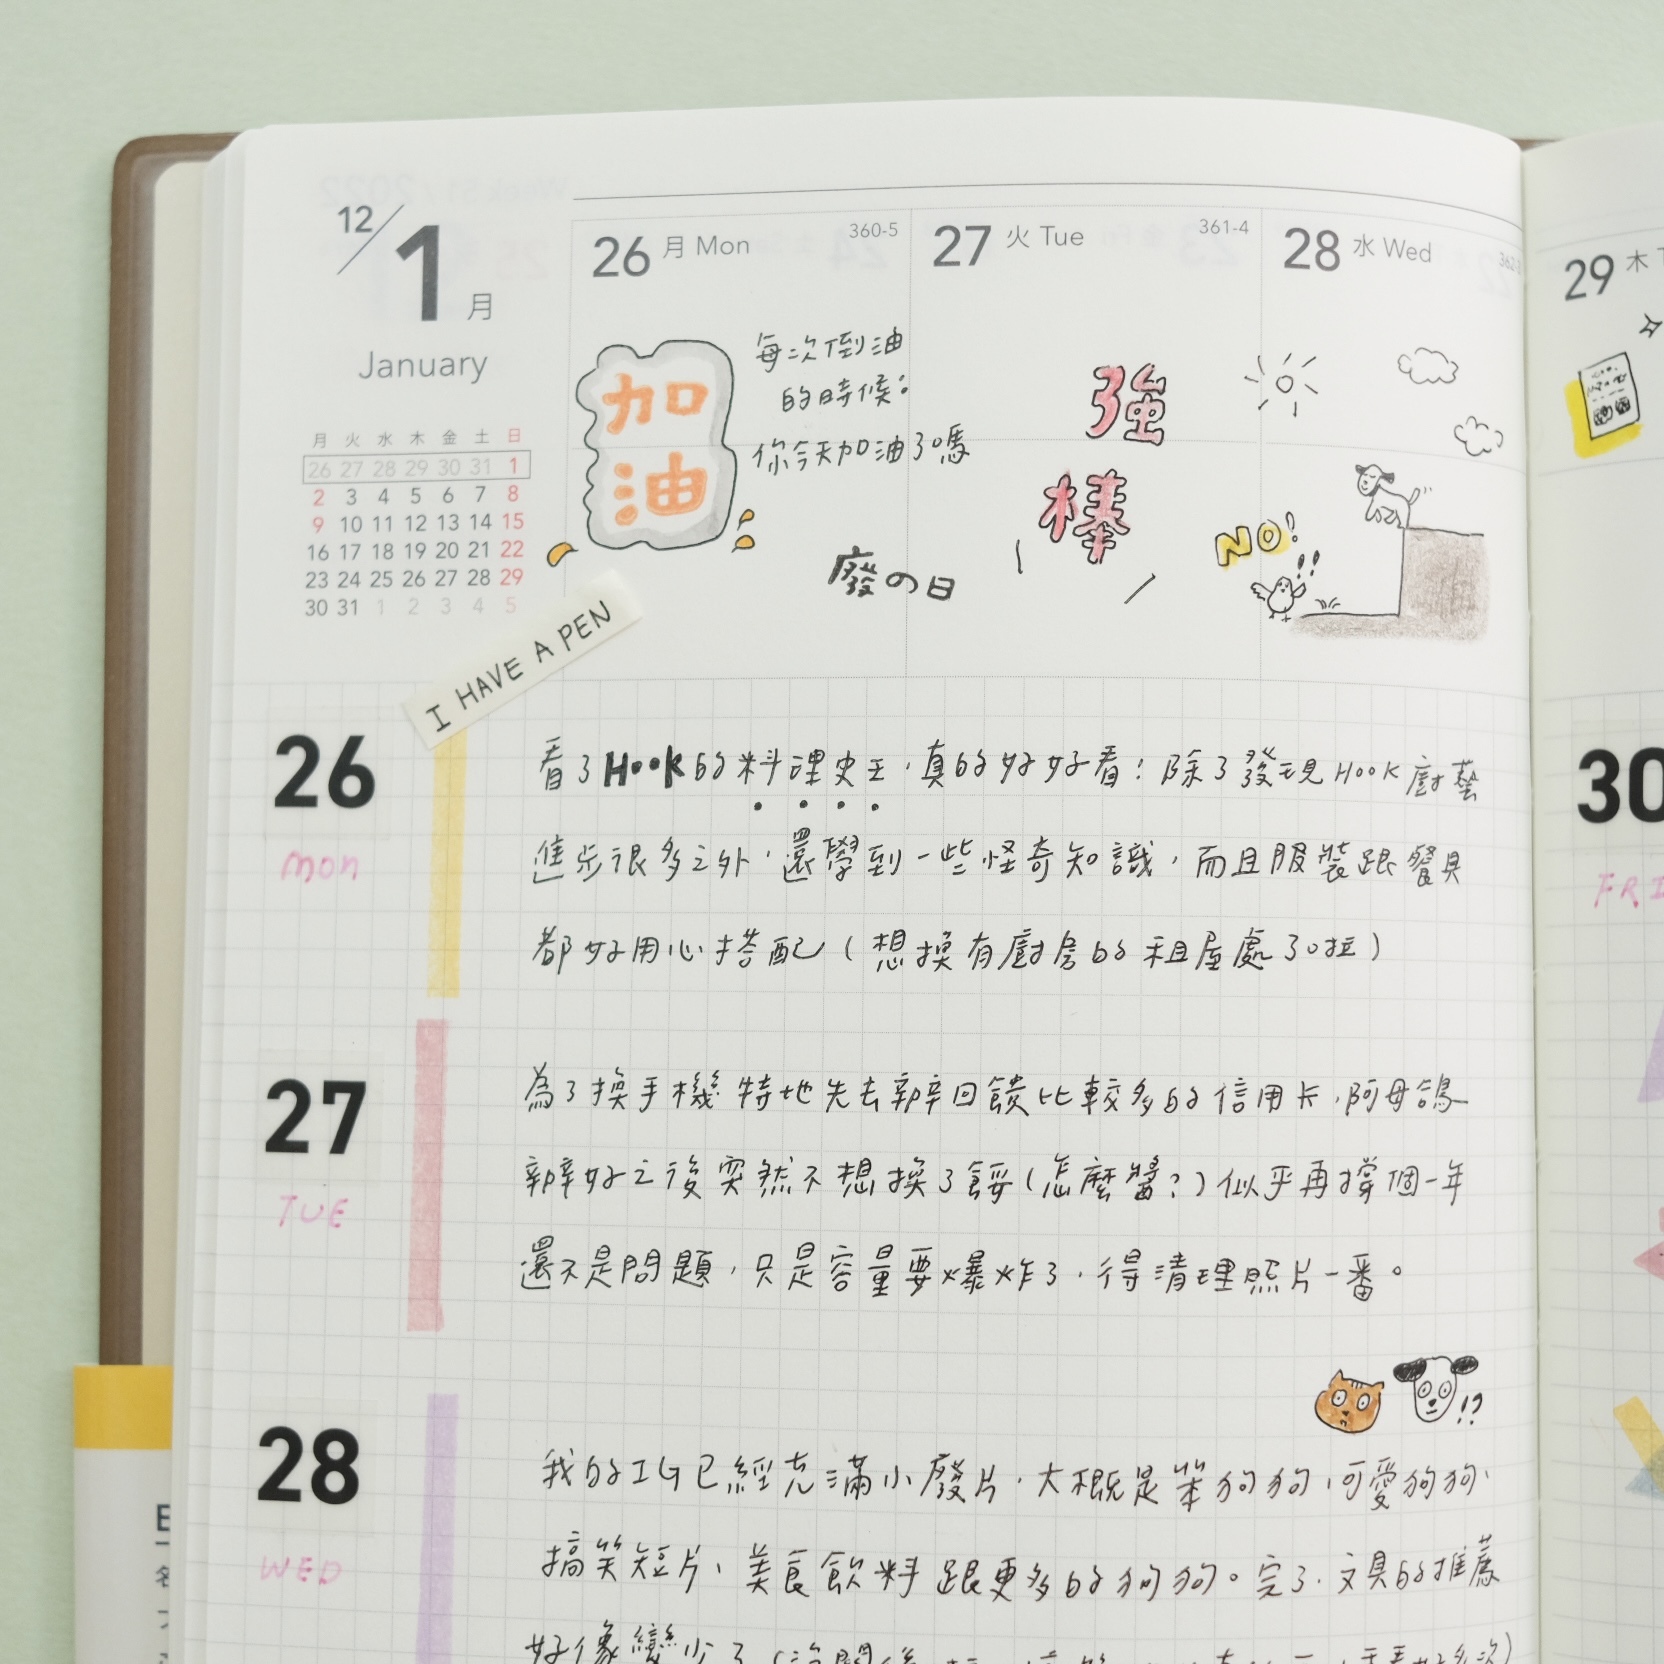 12/1月
January
月 火 水 木 金 土 日
26 27 28 29 30 31 1
2 3 4 5 6 7 8
9 10 11 12 13 14 15
16 17 18 19 20 21 22
23 24 25 26 27 28 29
30 31 1 2 3 4 5
26 月 Mon 360-5
加
油
每次倒油
的時候：
你今天加油了嗎
廢の日
27 火 Tue 361-4
強
棒
28 水 Wed
NO!
!!
29 木
I HAVE A PEN
26
MON
看了Hook的料理史王，真的好好看！除了發現HOOK廚藝
進步很多之外，還學到一些怪奇知識，而且服裝跟餐具
都好用心搭配（想換有廚房的租屋處了啦）
27
TUE
為了換手機特地先去辦回饋比較多的信用卡，阿母鴿
辦好之後突然不想換了餒（怎麼醬？）似乎再撐個一年
還不是問題，只是容量要爆炸了，得清理照片一番。
!?
28
WED
我的IG已經充滿小廢片，大概是笨狗狗、可愛狗狗、
搞笑短片、美食飲料跟更多的狗狗。完了，文具的推薦
好像變少了
30
FRI